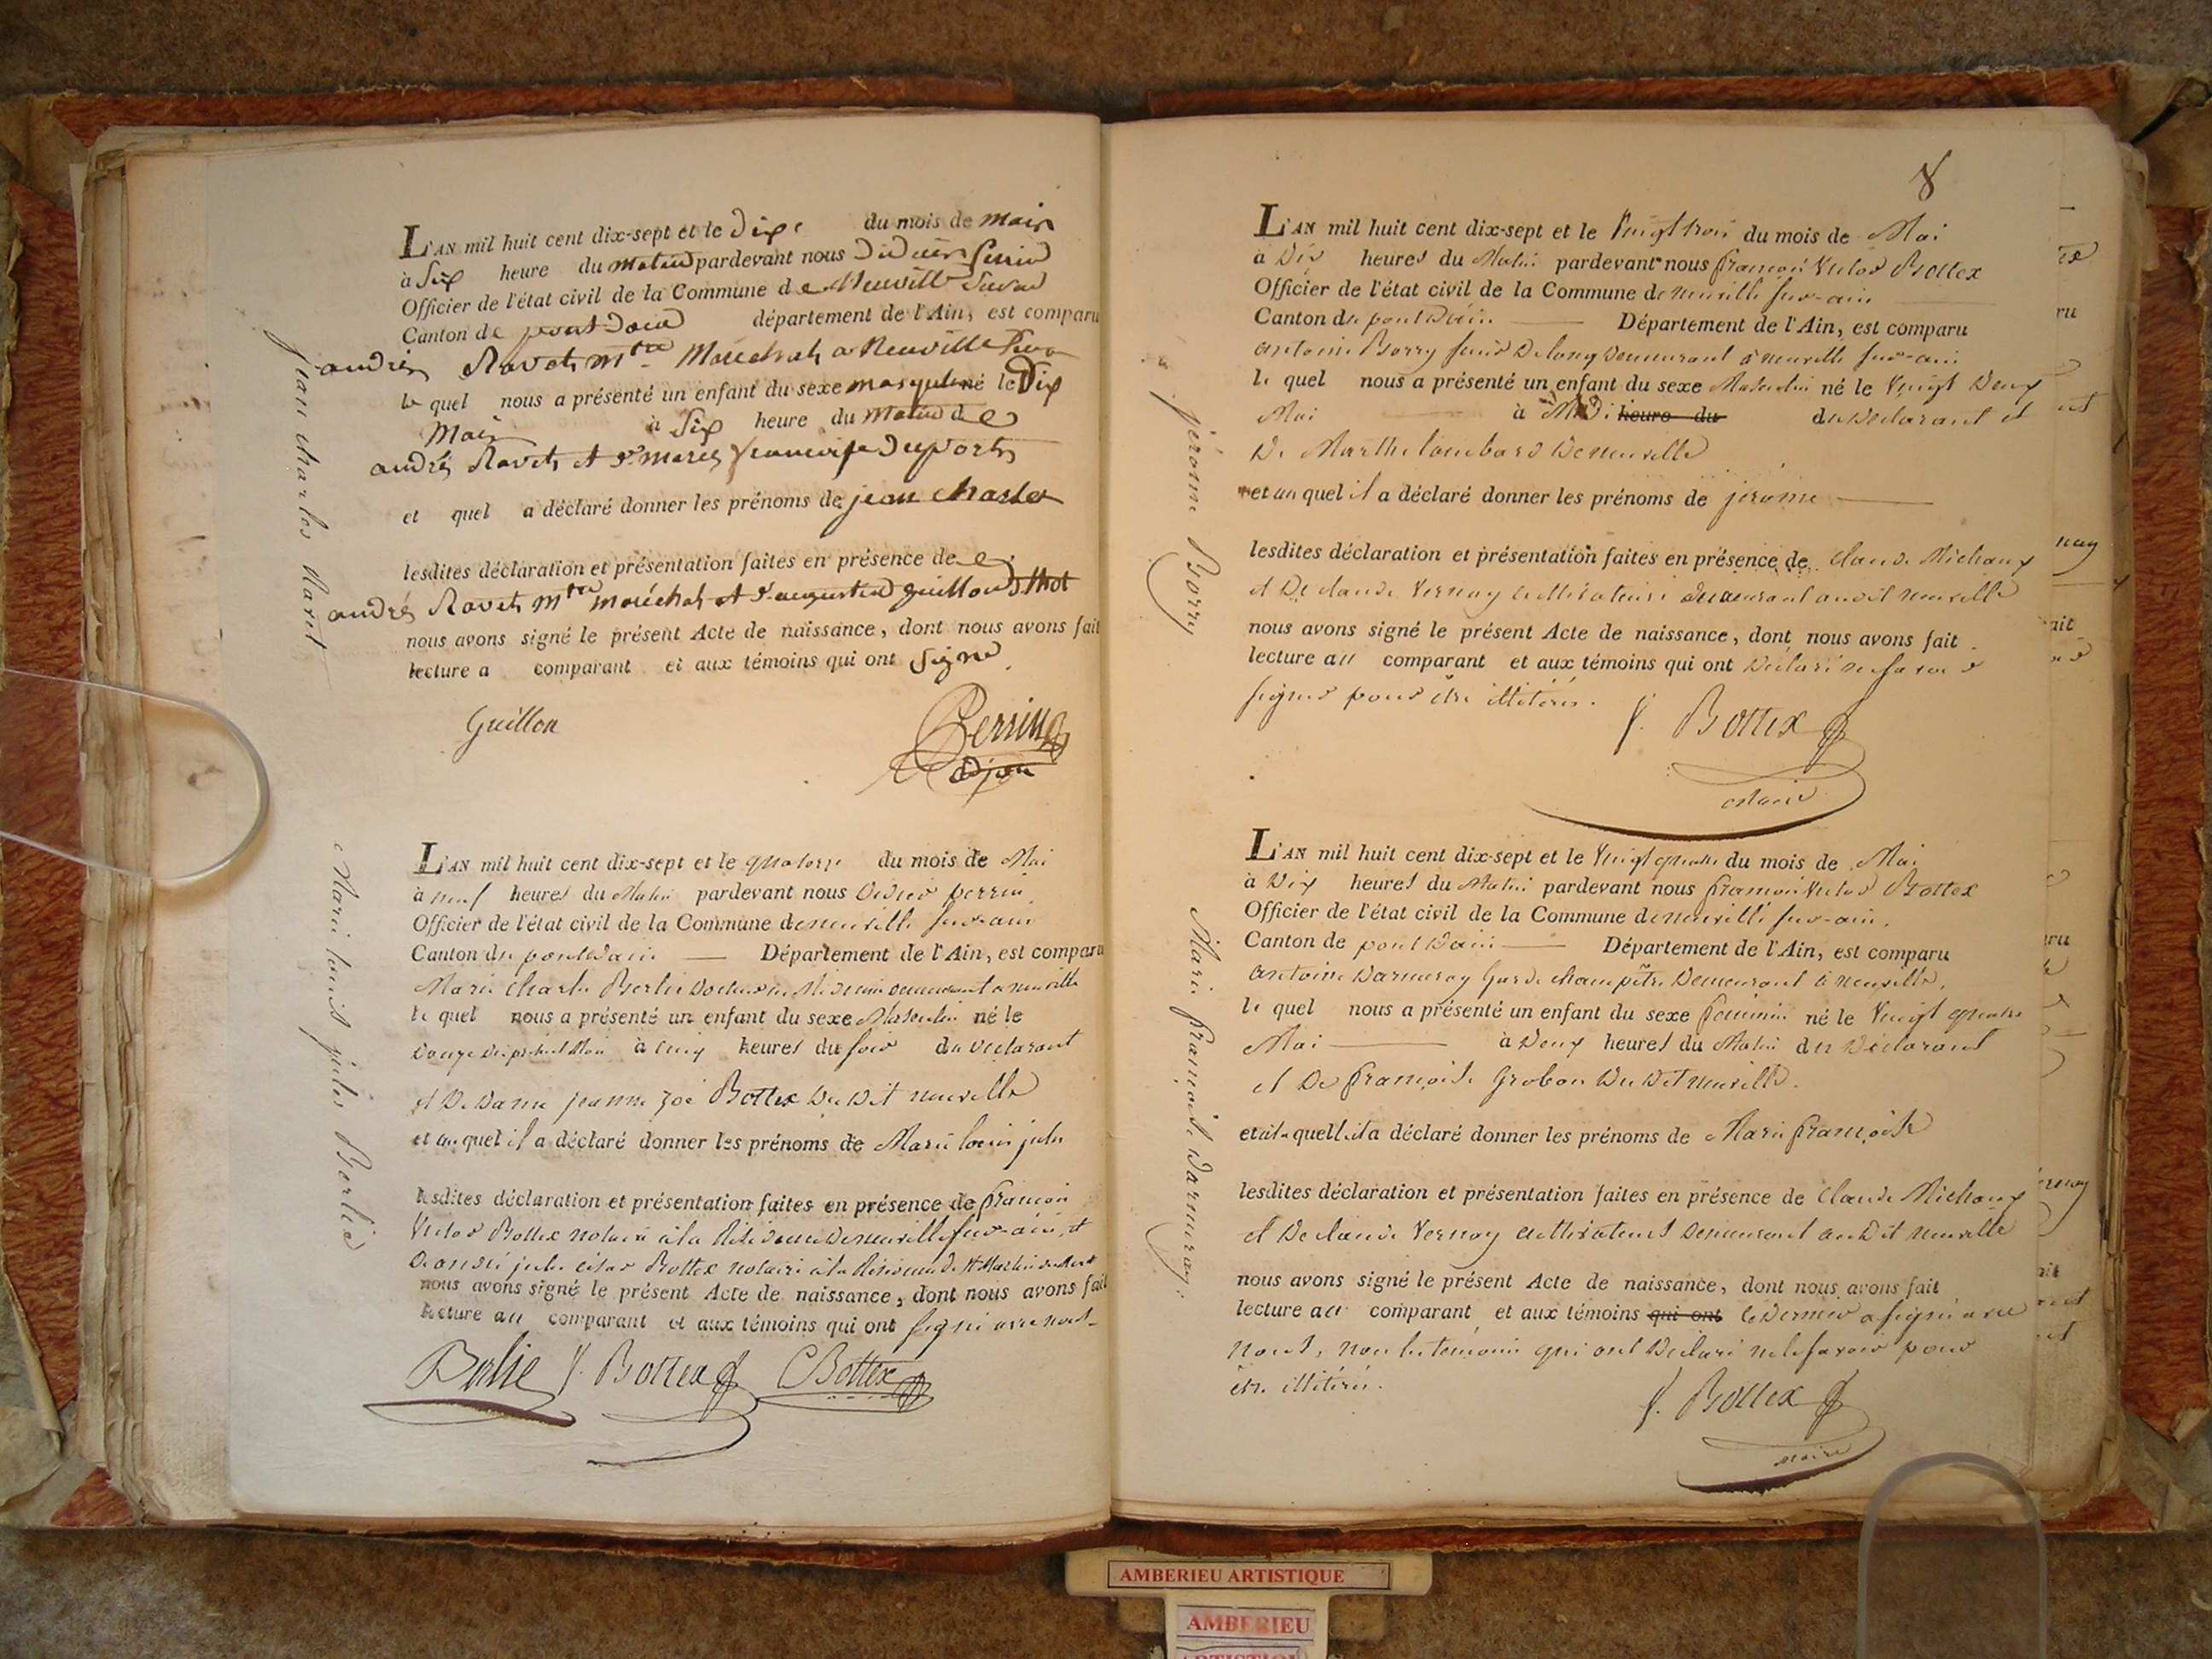 L'AN mil huit cent dix-sept et le dix du mois de mais
à six heure du matin pardevant nous didier perrin
Officier de l'état civil de la Commune de Neuville
Canton de pont département de l'Ain, est comparu
andré Ravet Mtre Maréchal a Neuville
le quel nous a présenté un enfant du sexe masqulin né le Dix
Mais à Six heure du matin de
andré Ravet et marie
et quel a déclaré donner les prénoms de jean charles
lesdites déclaration et présentation faites en présence de
andré Ravet Mtre maréchal et augustin guillon
nous avons signé le présent Acte de naissance, dont nous avons fait
lecture a comparant et aux témoins qui ont Signe
Guillon
Perrin
adjoin
jean charles Ravet
L'AN mil huit cent dix-sept et le quatorze du mois de Mai
à neuf heures du Matin pardevant nous Didier perrin
Officier de l'état civil de la Commune de neuville sur-ain
Canton du pont d'ain Département de l'Ain, est comparu
Marie charle Berlie docteur en Médecine demeurant a neuville
le quel nous a présenté un enfant du sexe Masculin né le
Douze du présent Mois à cinq heures du soir du déclarant
et De Dame jeanne Zoé Bottex du dit neuville
et au quel il a déclaré donner les prénoms de Marie louis jules
lesdites déclaration et présentation faites en présence de françois
Victor Bottex notaire a la Résidence de neuville sur-ain, et
De jules césar Bottex notaire a la Résidence de St Martin du Mont
nous avons signé le présent Acte de naissance, dont nous avons fait
lecture au comparant et aux témoins qui ont signé avec nous
Berlie V. Bottex C Bottex
Marie louis jules Berlie
8
L'AN mil huit cent dix-sept et le Vingt trois du mois de Mai
à Dix heures du Matin pardevant nous françois Victor Bottex
Officier de l'état civil de la Commune de neuville sur-ain
Canton du pont d'ain. Département de l'Ain, est comparu
antoine Borry demeurant à neuville sur-ain
le quel nous a présenté un enfant du sexe Masculin né le Vingt Deux
Mai à Midi heure du du Déclarant et
De Marthe lombard De neuville
et au quel il a déclaré donner les prénoms de jérome
lesdites déclaration et présentation faites en présence de Claude Michaux
et De claude Vernay cultivateurs demeurant au dit neuville
nous avons signé le présent Acte de naissance, dont nous avons fait
lecture au comparant et aux témoins qui ont Déclaré ne savoir
signer pour être illitérés.
V. Bottex
Maire
jérome Borry
L'AN mil huit cent dix-sept et le Vingt quatre du mois de Mai
à Dix heures du Matin pardevant nous françois Victor Bottex
Officier de l'état civil de la Commune de neuville sur-ain.
Canton de pont d'ain Département de l'Ain, est comparu
antoine Darmeray Garde champêtre Demeurant à neuville,
le quel nous a présenté un enfant du sexe féminin né le Vingt quatre
Mai à Deux heures du Matin du Déclarant
et De françoise Grobon Du Dit neuville.
et à la quelle il a déclaré donner les prénoms de Marie françoise
lesdites déclaration et présentation faites en présence de Claude Michaux
et De claude Vernay cultivateurs Demeurant au Dit neuville
nous avons signé le présent Acte de naissance, dont nous avons fait
lecture au comparant et aux témoins qui ont le Dernier a signé avec
nous, non les témoins qui ont Déclaré ne le savoir pour
être illitérés.
V. Bottex
maire
Marie françoise Darmeray
AMBERIEU ARTISTIQUE
AMBERIEU